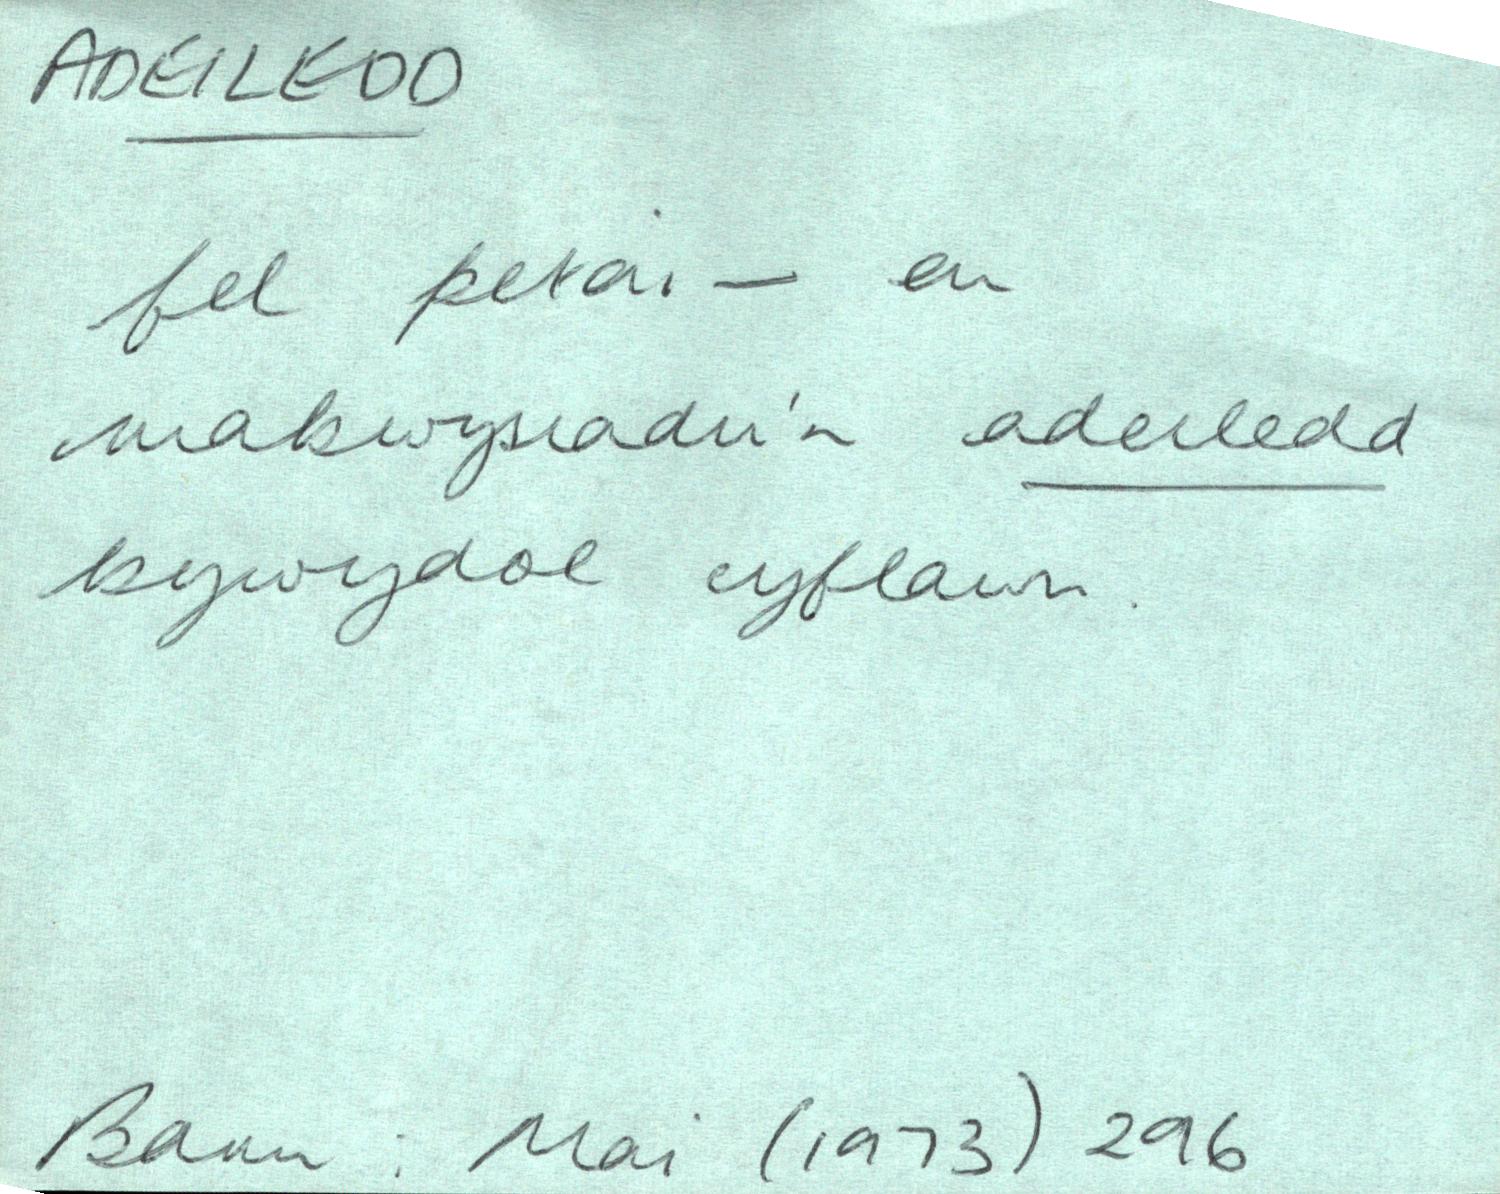 ADEILEDD
fel petai – eu
mabwysiadu'n adeiledd
bywydol cyflawn.
Barn : Mai (1973) 296